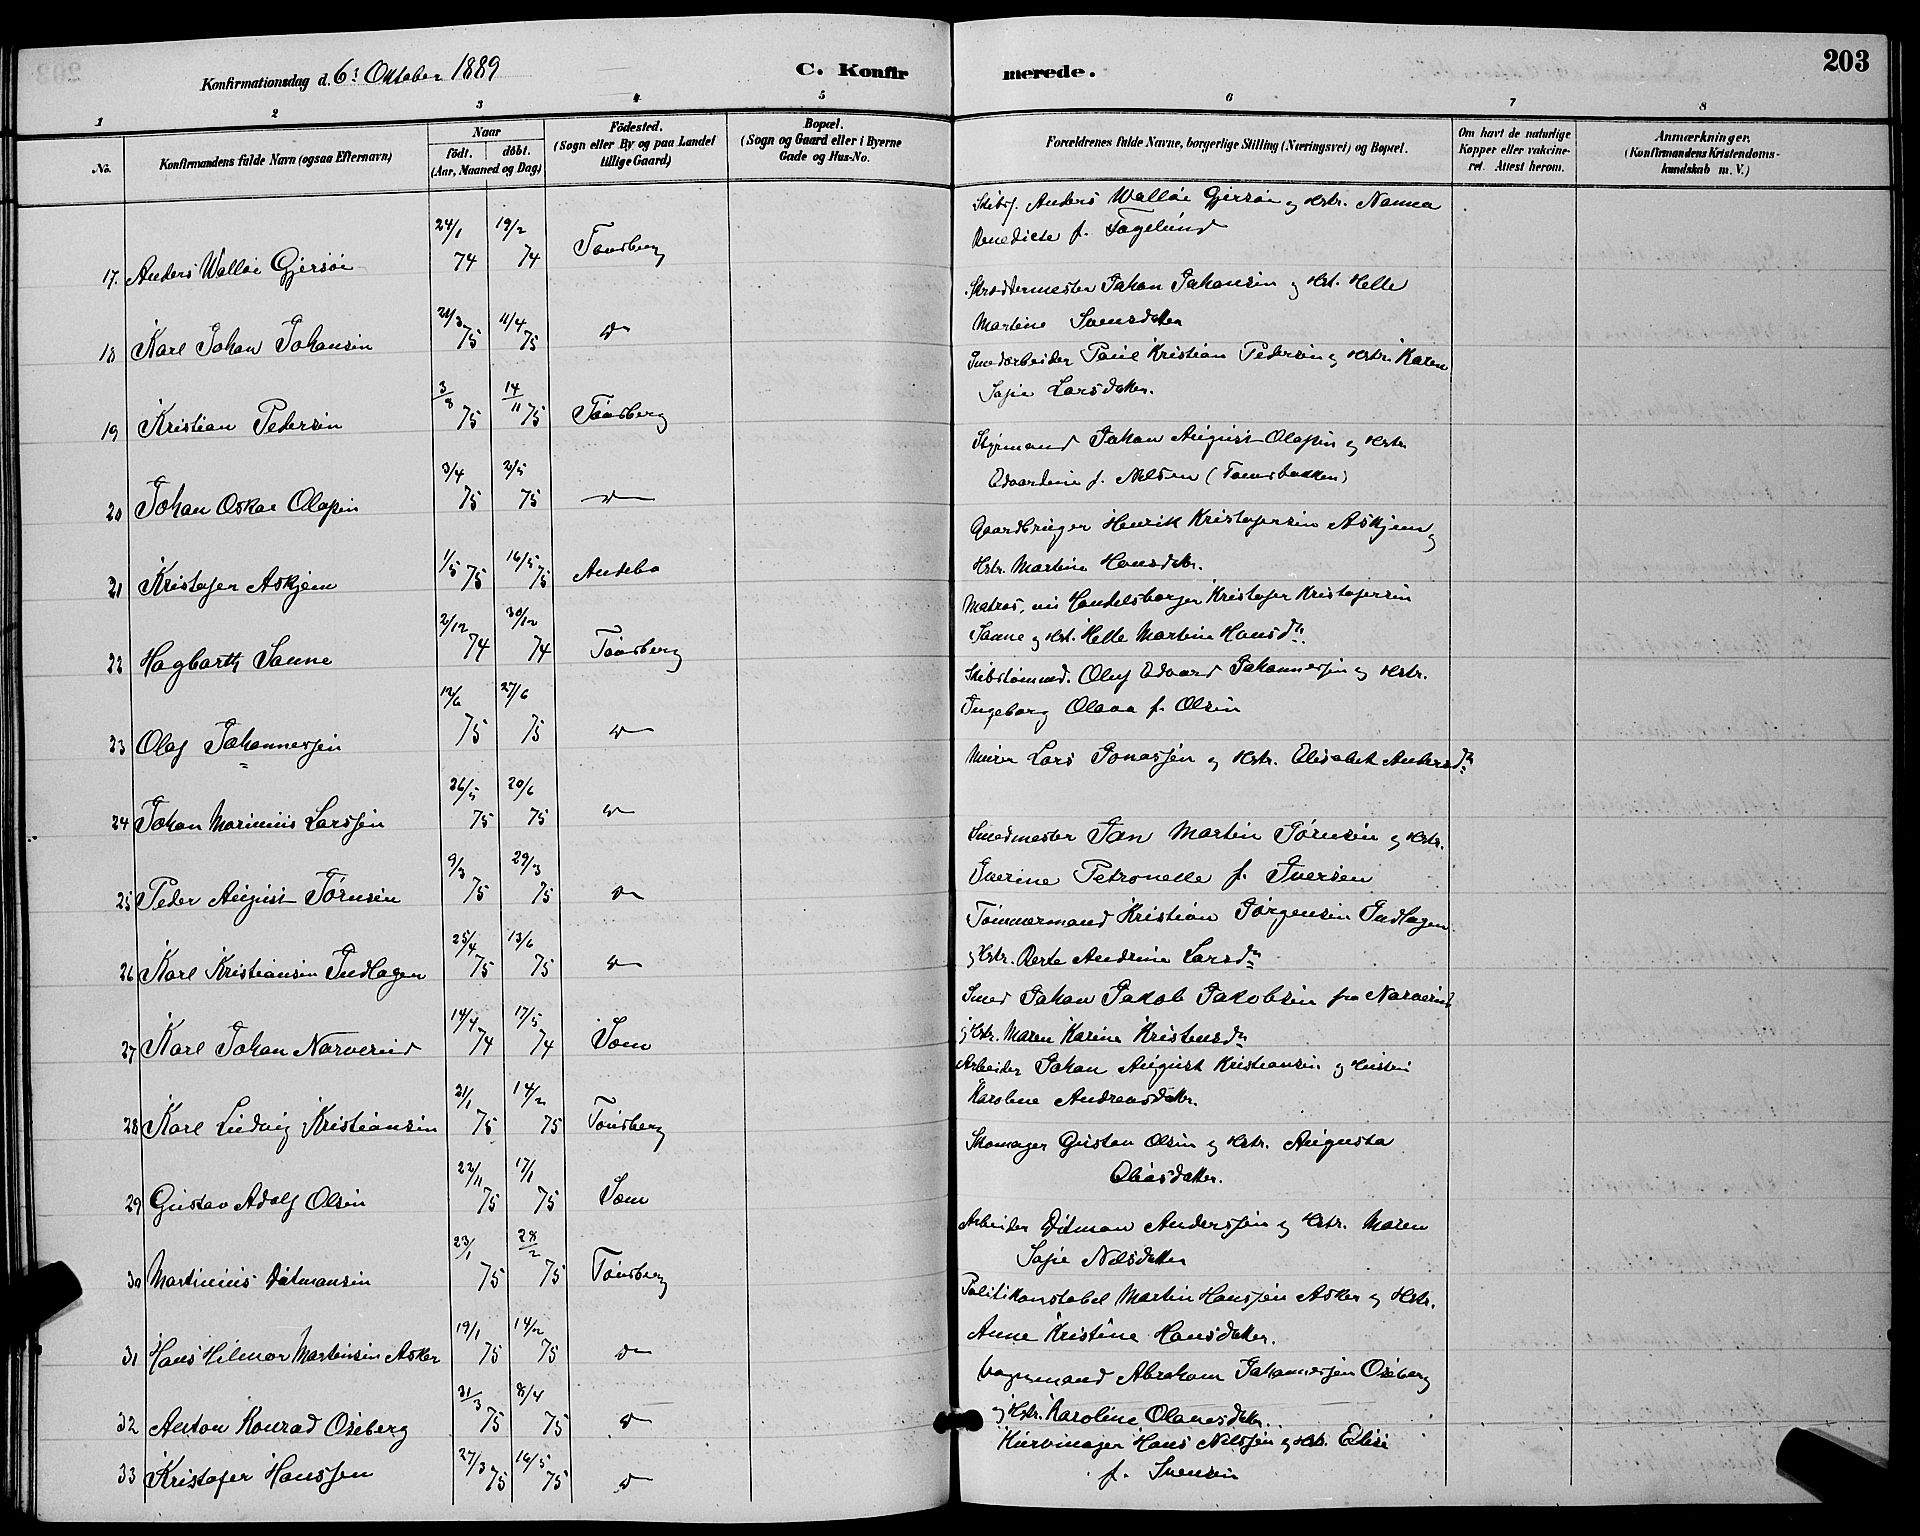 203
Konfirmationsdag d. 6: Oktober 1889
C. Konfirmerede.
1 2 3 4 5 6 7 8
No.
Konfirmandens fulde Navn (ogsaa Efternavn)
Naar
födt. döbt.
(Aar, Maaned og Dag)
Födested.
(Sogn eller By og paa Landet
tillige Gaard)
Bopæl.
(Sogn og Gaard eller i Byerne
Gade og Hus-No.
Forældrenes fulde Navne, borgerlige Stilling (Næringsvei) og Bopæl.
Om havt de naturlige
Kopper eller vakcine-
ret. Attest herom.
Anmærkninger.
(Konfirmandens Kristendoms-
kundskab m. V.)
17. Anders Walløe Gjersøe 24/1 74 19/2 74 Tønsberg
Skibsf. Anders Walløe Gjersøe og Hstr. Nanna
Benedicte f. Fagelund
18 Karl Johan Johansen 21/3 75 11/4 75 do
Skrædermester Johan Johansen og Hst. Helle
Martine Svensdatter
19 Kristian Pedersen 3/8 75 14/11 75 Tønsberg
Smedarbeider Paul Kristian Pedersen og Hstr. Karen
Sofie Larsdatter.
20 Johan Oskar Olafsen 3/4 75 2/5 75 do
Styrmand Johan August Olafsen og Hstr
Edvardine f. Nelsen (Tomsbakken)
21 Kristofer Askjem 1/5 75 16/5 75 Andebo
Gaardbruger Henrik Kristofersen Askjem og
Hstr. Martine Hansdatr.
22 Hagbarth Sanne 2/12 74 30/12 74 Tønsberg
Matros, nu Handelsborger Kristofer Kristofersen
Sanne og Hst. Helle Martine Hansdtr
23 Olaf Johannessen 12/6 75 27/6 75 do
Skibstømmd. Oluf Edvard Johannessen og Hstr.
Ingeborg Olava f. Olsen
24 Johan Marinius Larssen 26/5 75 20/6 75 do
Murer Lars Jonassen og Hstr. Elisabet Andersdtr
25 Peder August Jørnsen 9/3 75 29/3 75 do
Smedmester Jan Martin Jørnsen og Hstr.
Iverine Petronelle f. Iversen
26 Karl Kristiansen Indlagen 25/4 75 13/6 75 do
Tømmermand Kristian Jørgensen Indlagen
og Hstr. Berte Andrine Larsdtr
27 Karl Johan Narverud 14/4 74 17/5 74 Sem
Smed Johan Jakob Jakobsen fra Narverud
og Hstr. Maren Karine Kristensdtr
28 Karl Ludvig Kristiansen 21/1 75 14/2 75 Tønsberg
Arbeider Johan August Kristiansen og Hustru
Karoline Andreasdatr.
29 Gustav Adolf Olsen 22/11 75 17/1 75 Sem
Skomager Gustav Olsen og Hstr. Augusta
Oliasdatter.
30 Martinius Ditmansen 23/1 75 28/2 75 Tønsberg
Arbeider Ditman Anderssen og Hstr. Maren
Sofie Nelsdatter
31 Hans Hilmar Martinsen Asker 19/1 75 14/2 75 do
Politikonstabel Martin Hanssen Asker og Hstr.
Anne Kristine Hansdatter.
32 Anton Konrad Oseberg 31/3 75 8/4 75 do
Vognmand Abraham Johannessen Oseberg
og Hstr. Karoline Olavesdatr.
33 Kristofer Hanssen 27/3 75 16/5 75 do
Kurvmager Hans Nelssen og Hst. Elise
f. Svensen